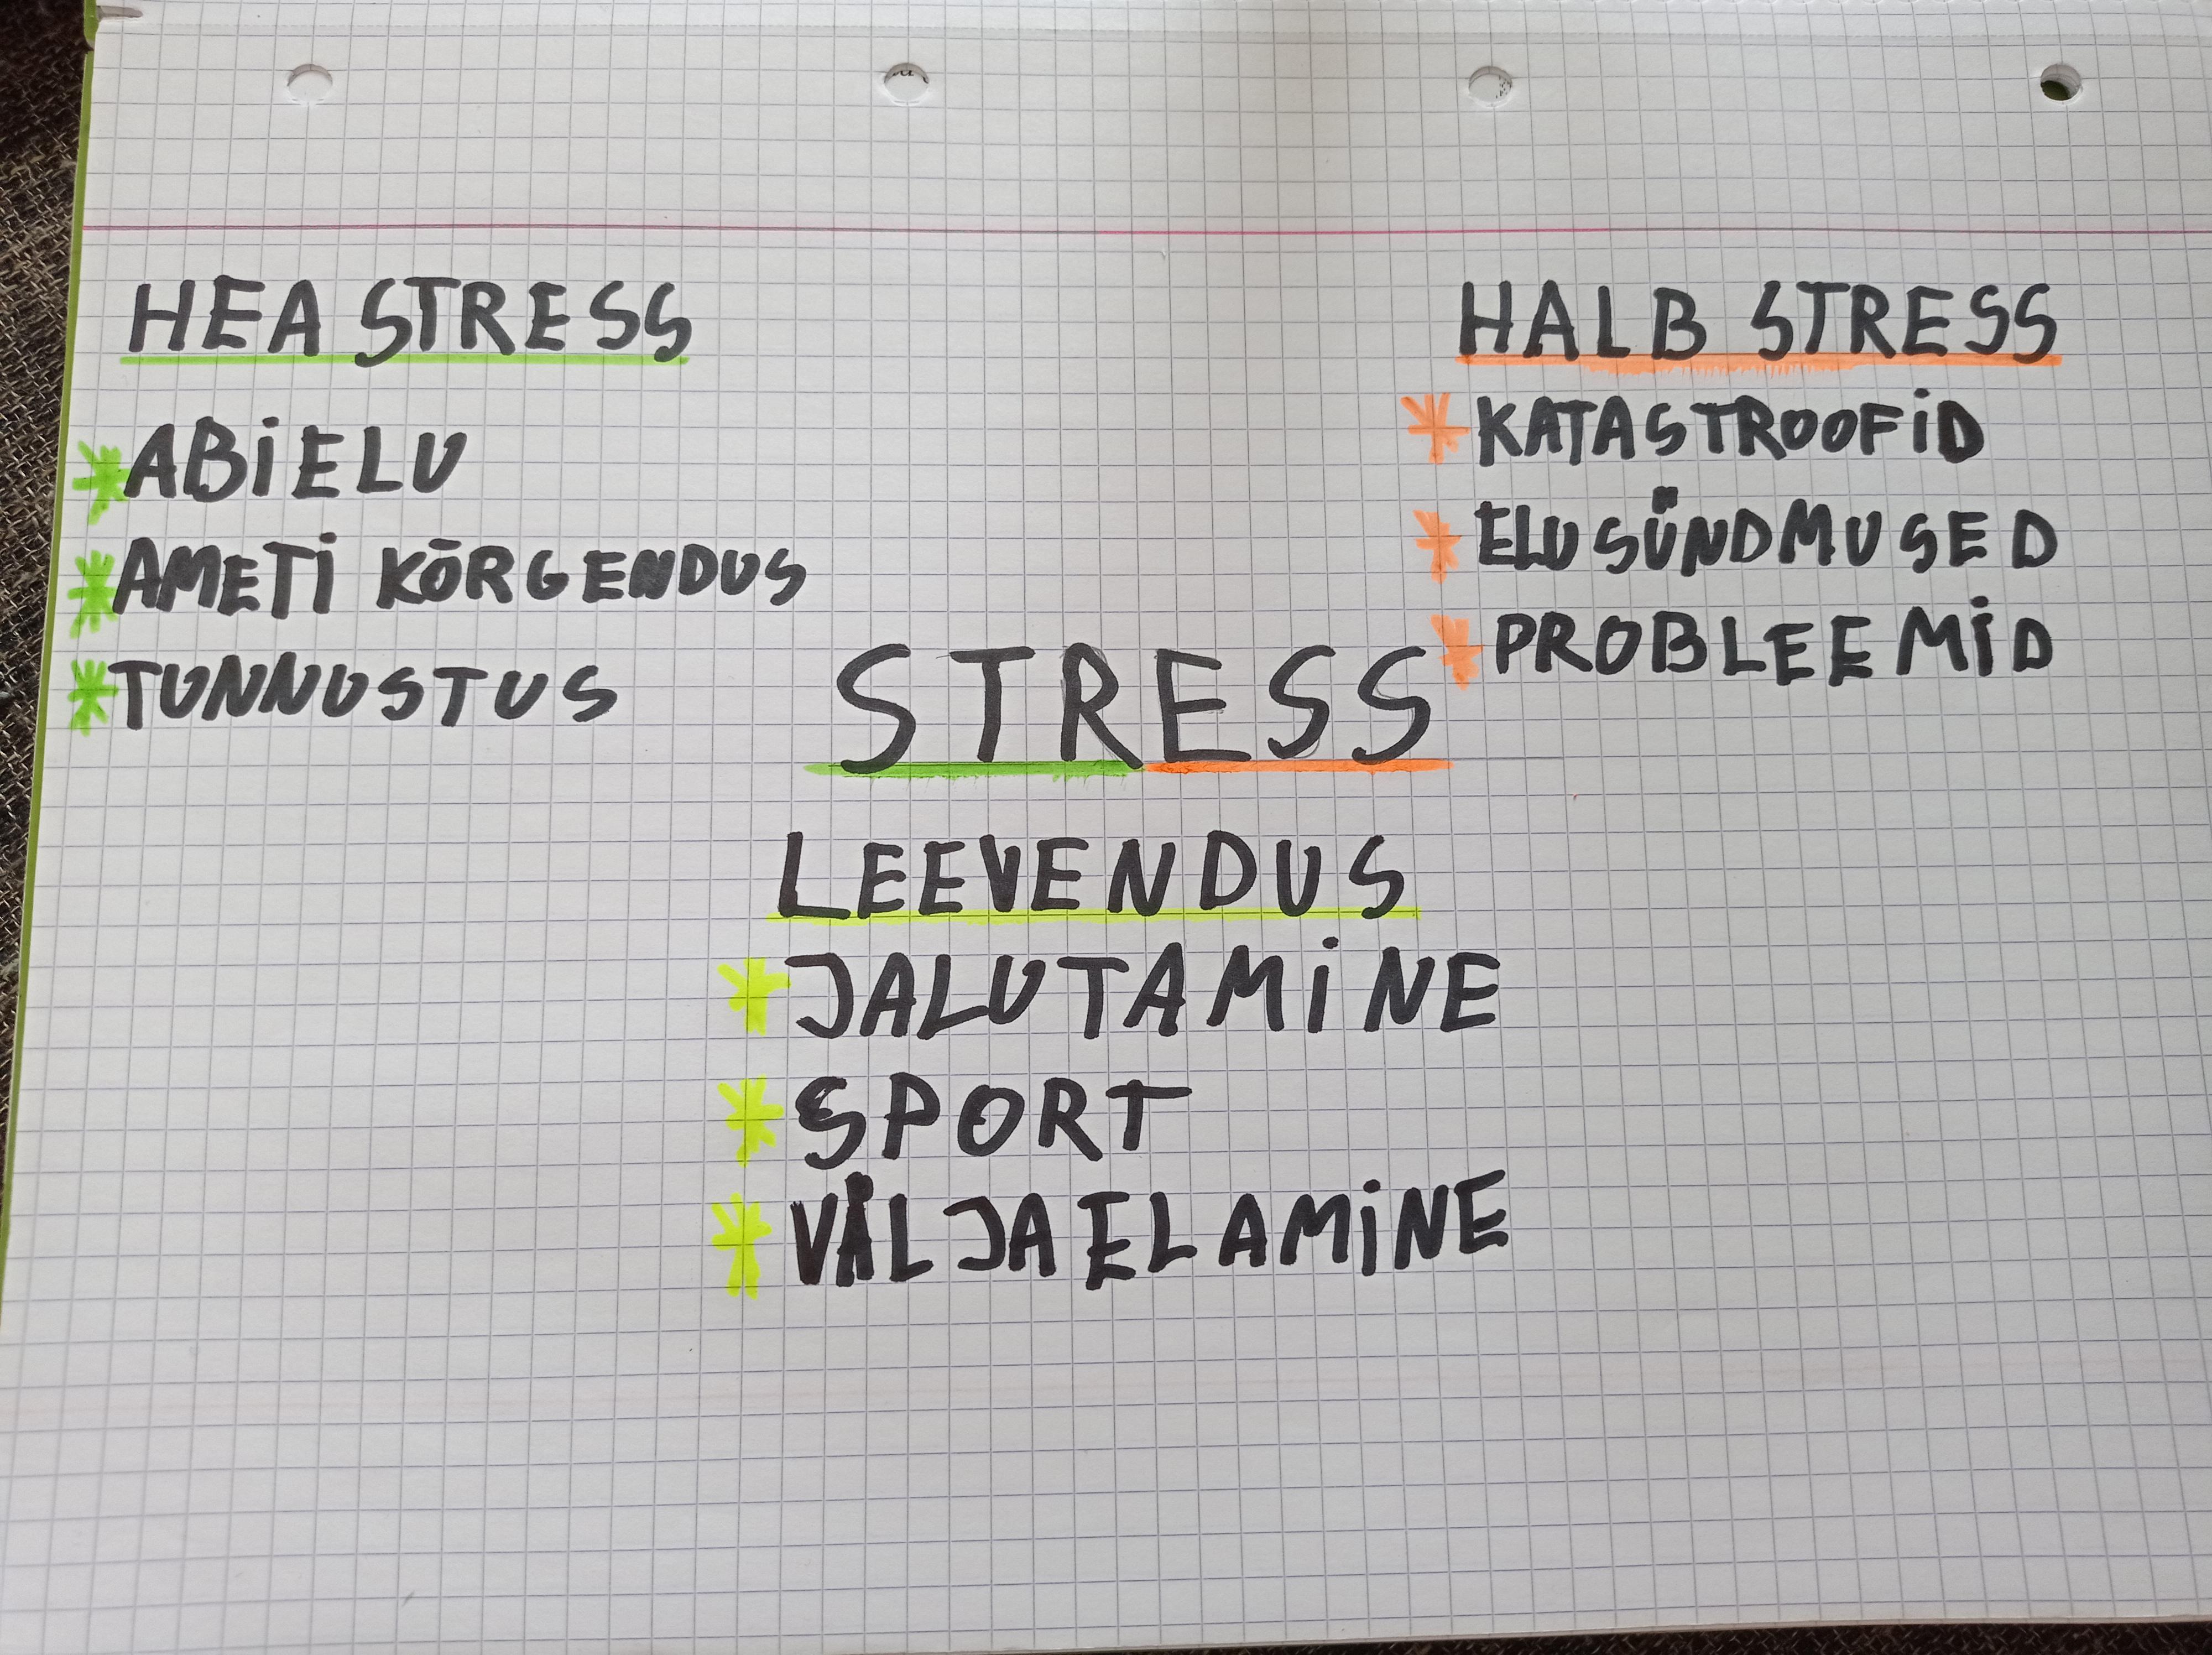 HEA STRESS
ABIELU
AMETI KÕRGENDUS
TUNNUSTUS
HALB STRESS
KATASTROOFID
ELUSÜNDMUSED
PROBLEEMID
STRESS
LEEVENDUS
JALUTAMINE
SPORT
VÄLJAELAMINE